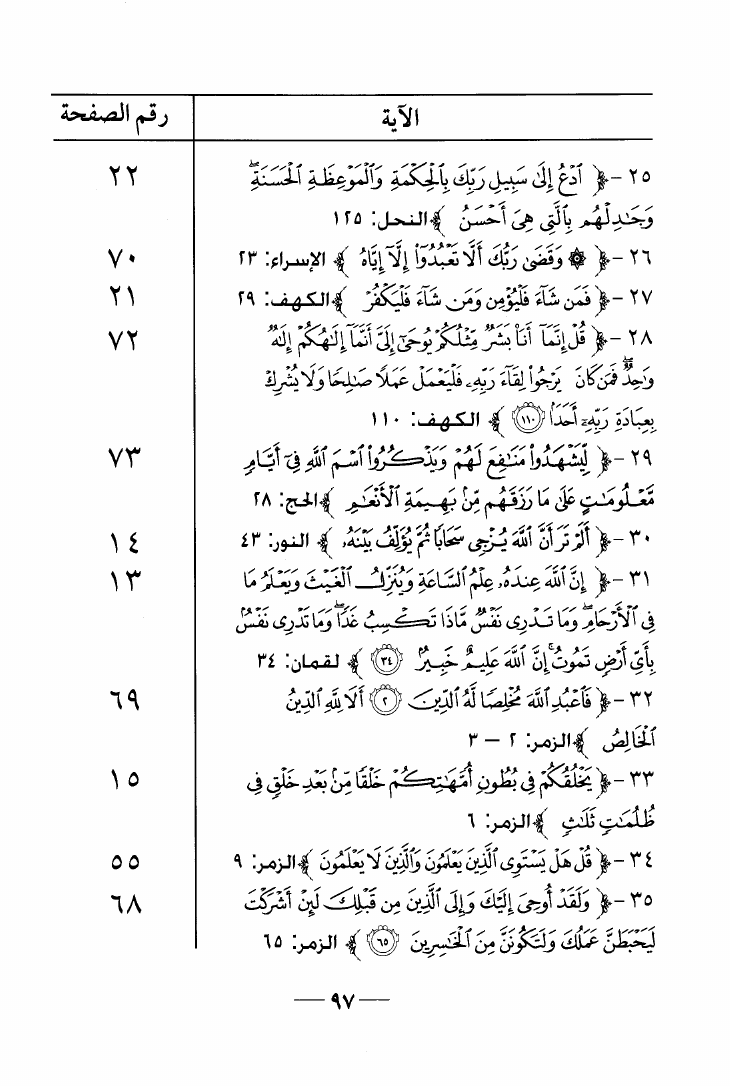 الآية رقم الصفحة
٢٥ - ﴿ ٱدْعُ إِلَىٰ سَبِيلِ رَبِّكَ بِٱلْحِكْمَةِ وَٱلْمَوْعِظَةِ ٱلْحَسَنَةِ ۖ ٢٢
وَجَٰدِلْهُم بِٱلَّتِى هِىَ أَحْسَنُ ﴾ النحل: ١٢٥
٢٦ - ﴿ ۞ وَقَضَىٰ رَبُّكَ أَلَّا تَعْبُدُوٓا۟ إِلَّآ إِيَّاهُ ﴾ الإسراء: ٢٣ ٧٠
٢٧ - ﴿ فَمَن شَآءَ فَلْيُؤْمِن وَمَن شَآءَ فَلْيَكْفُرْ ﴾ الكهف: ٢٩ ٢١
٢٨ - ﴿ قُلْ إِنَّمَآ أَنَا۠ بَشَرٌ مِّثْلُكُمْ يُوحَىٰٓ إِلَىَّ أَنَّمَآ إِلَٰهُكُمْ إِلَٰهٌ ٧٢
وَٰحِدٌ ۖ فَمَن كَانَ يَرْجُوا۟ لِقَآءَ رَبِّهِۦ فَلْيَعْمَلْ عَمَلًا صَٰلِحًا وَلَا يُشْرِكْ
بِعِبَادَةِ رَبِّهِۦٓ أَحَدًۢا ١١٠ ﴾ الكهف: ١١٠
٢٩ - ﴿ لِّيَشْهَدُوا۟ مَنَٰفِعَ لَهُمْ وَيَذْكُرُوا۟ ٱسْمَ ٱللَّهِ فِىٓ أَيَّامٍ ٧٣
مَّعْلُومَٰتٍ عَلَىٰ مَا رَزَقَهُم مِّنۢ بَهِيمَةِ ٱلْأَنْعَٰمِ ﴾ الحج: ٢٨
٣٠ - ﴿ أَلَمْ تَرَ أَنَّ ٱللَّهَ يُزْجِى سَحَابًا ثُمَّ يُؤَلِّفُ بَيْنَهُۥ ﴾ النور: ٤٣ ١٤
٣١ - ﴿ إِنَّ ٱللَّهَ عِندَهُۥ عِلْمُ ٱلسَّاعَةِ وَيُنَزِّلُ ٱلْغَيْثَ وَيَعْلَمُ مَا ١٣
فِى ٱلْأَرْحَامِ ۖ وَمَا تَدْرِى نَفْسٌ مَّاذَا تَكْسِبُ غَدًا ۖ وَمَا تَدْرِى نَفْسٌۢ
بِأَىِّ أَرْضٍ تَمُوتُ ۚ إِنَّ ٱللَّهَ عَلِيمٌ خَبِيرٌۢ ٣٤ ﴾ لقمان: ٣٤
٣٢ - ﴿ فَٱعْبُدِ ٱللَّهَ مُخْلِصًا لَّهُ ٱلدِّينَ ٢ أَلَا لِلَّهِ ٱلدِّينُ ٦٩
ٱلْخَالِصُ ﴾ الزمر: ٢ – ٣
٣٣ - ﴿ يَخْلُقُكُمْ فِى بُطُونِ أُمَّهَٰتِكُمْ خَلْقًا مِّنۢ بَعْدِ خَلْقٍ فِى ١٥
ظُلُمَٰتٍ ثَلَٰثٍ ﴾ الزمر: ٦
٣٤ - ﴿ قُلْ هَلْ يَسْتَوِى ٱلَّذِينَ يَعْلَمُونَ وَٱلَّذِينَ لَا يَعْلَمُونَ ﴾ الزمر: ٩ ٥٥
٣٥ - ﴿ وَلَقَدْ أُوحِىَ إِلَيْكَ وَإِلَى ٱلَّذِينَ مِن قَبْلِكَ لَئِنْ أَشْرَكْتَ ٦٨
لَيَحْبَطَنَّ عَمَلُكَ وَلَتَكُونَنَّ مِنَ ٱلْخَٰسِرِينَ ٦٥ ﴾ الزمر: ٦٥
— ٩٧ —